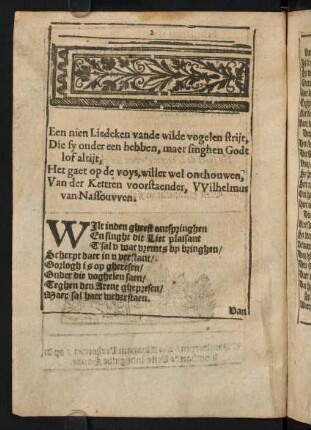 2
Een nieu Liedeken vande wilde vogelen strijt,
Die sy onder een hebben, maer singhen Godt
lof altijt,
Het gaet op de voys, wilter wel onthouwen,
Van der Kettren voorstaender, VVilhelmus
van Nassouvven.
WIlt inden gheest ontspringhen
En singht dit Liet plaisant
T'sal v wat vremts by bringhen/
Scherpt daer in v verstant/
Oorlogh is op gheresen/
Onder die voghelen saen/
Teghen den Arent ghepresen/
Maer sal haer wederstaen.
Van